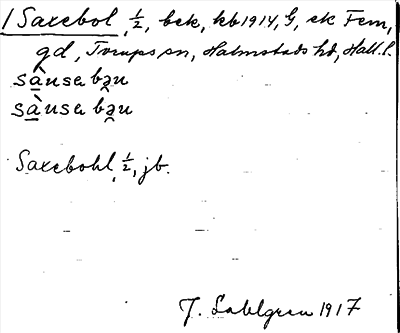 1 Saxebol, ½, bek, kb 1914, G, ek Fem,
gd, Trups sn, Halmstads hd, Hall. l.
sàusa bəu
sàusa bəu
Saxebohl, ½, jb.
J. Sahlgren 1917